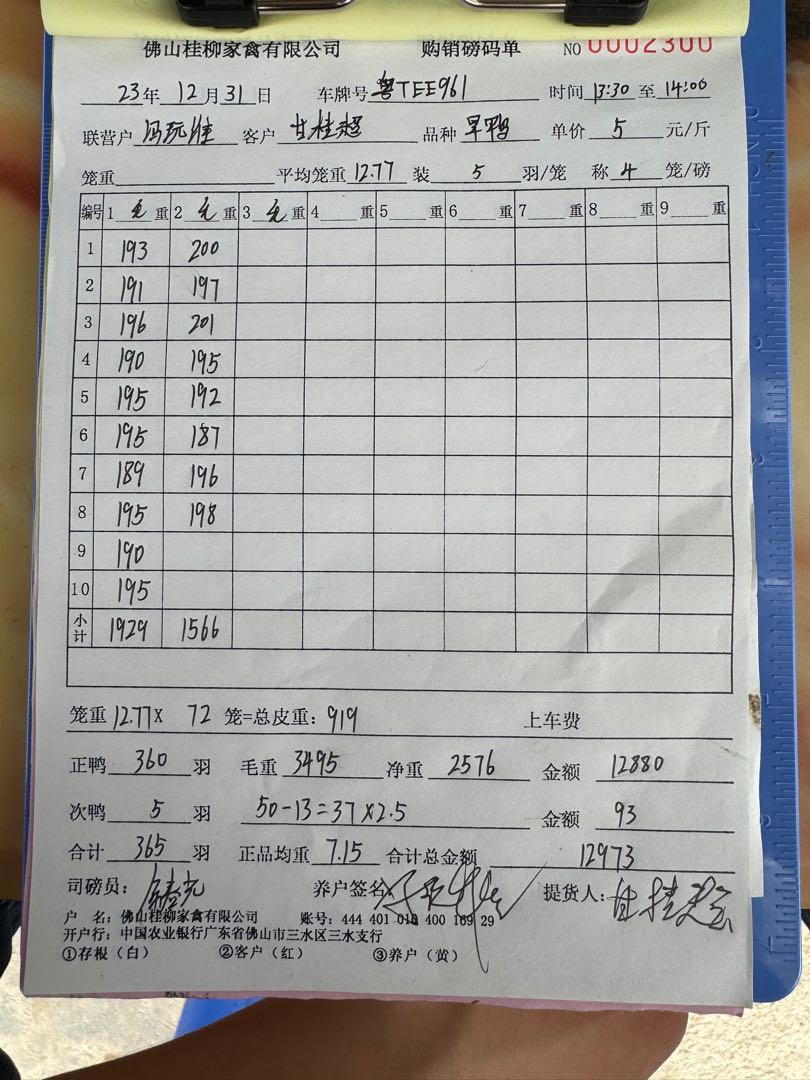 佛山桂柳家禽有限公司 购销磅码单 NO 0002300
23年 12月 31日 车牌号 粤TEE961 时间 13:30 至 14:00
联营户 冯玩雄 客户 甘桂超 品种 旱鸭 单价 5 元/斤
笼重 平均笼重 12.77 装 5 羽/笼 称 4 笼/磅
编号 1 毛 重 2 毛 重 3 毛 重 4 重 5 重 6 重 7 重 8 重 9 重
1 193 200
2 191 197
3 196 201
4 190 195
5 195 192
6 195 187
7 189 196
8 195 198
9 190
10 195
小计 1929 1566
笼重 12.77X 72 笼=总皮重: 919 上车费
正鸭 360 羽 毛重 3495 净重 2576 金额 12880
次鸭 5 羽 50-13=37X2.5 金额 93
合计 365 羽 正品均重 7.15 合计总金额 12973
司磅员: 养户签名 提货人: 甘桂超
户 名: 佛山桂柳家禽有限公司 账号: 444 401 010 400 169 29
开户行: 中国农业银行广东省佛山市三水区三水支行
①存根(白) ②客户(红) ③养户(黄)